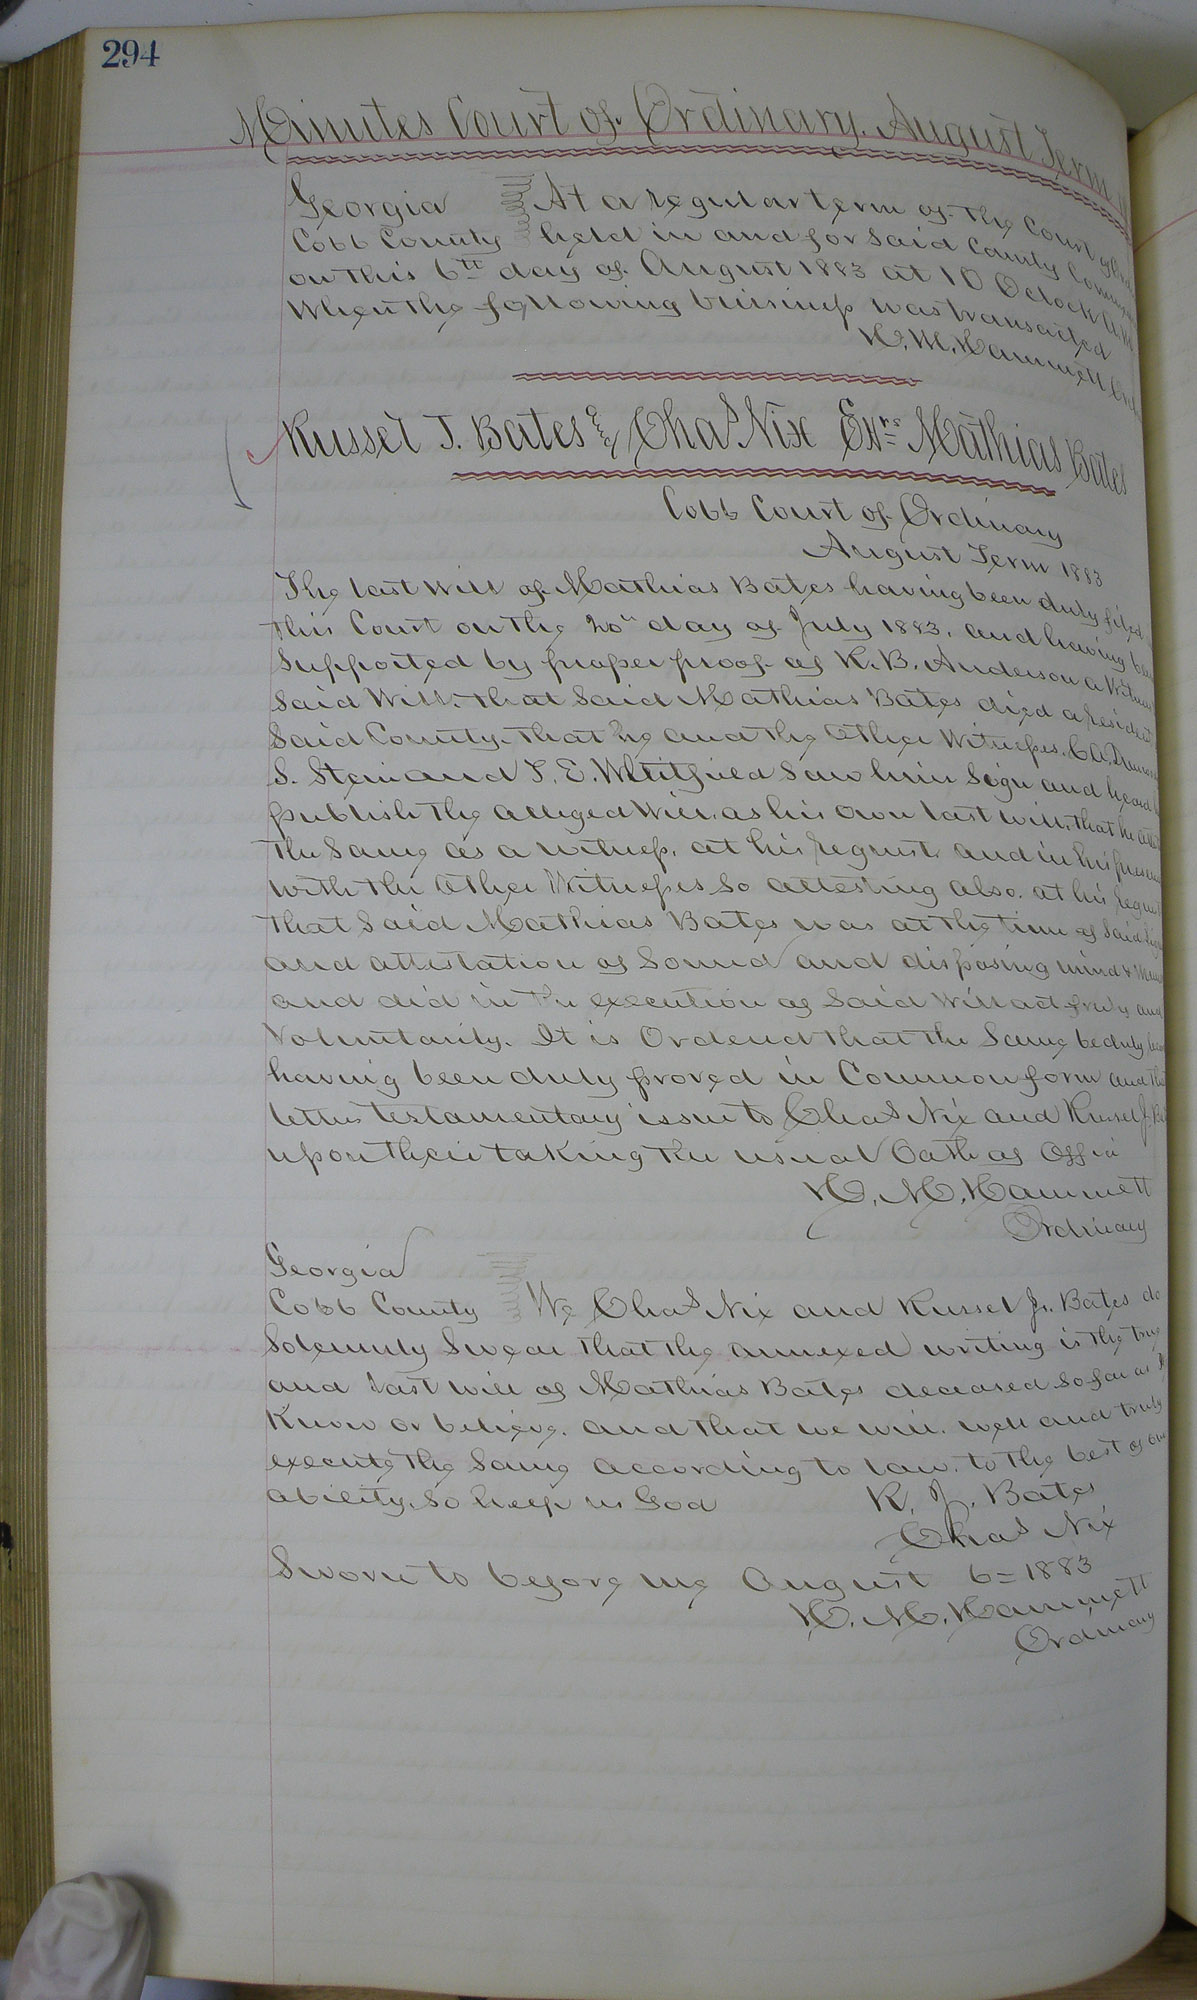 294
Minutes Court of Ordinary. August Term
Georgia At a regular term of the Court of
Cobb County held in and for said County
on this 6th day of August 1883 at 10 Oclock A.M.
When the following business was transacted
H. M. Hammett Ord
Russel J. Bates & Chas Nix Exrs Mathias Bates
Cobb Court of Ordinary
August Term 1883
The last will of Mathias Bates having been duly filed
this Court on the 20th day of July 1883. and having
Supported by proper proof of R. B. Anderson a
Said Will, that Said Mathias Bates died a resident
Said County. that he and the other Witnesses.
S. Stein and T. E. Whitfield Saw him Sign and heard
publish the alleged Will, as his own last will, that he
the Same as a witness, at his request and in his
with the other Witnesses so attesting also, at his
that Said Mathias Bates was at the time of Said
and attestation of Sound and disposing mind &
and did in the execution of Said Will act freely and
Voluntarily. It is Ordered that the Same be duly
having been duly proved in Common form and that
letters testamentary issue to Chas Nix and Russel J.
upon their taking the usual Oath of Office
H. M. Hammett
Ordinary
Georgia
Cobb County We Chas Nix and Russel J. Bates do
Solemnly Swear that the annexed writing is the true
and last will of Mathias Bates deceased so far as
Know or believe, and that we will, well and truly
execute the Same according to law. to the best of our
ability, So help us God R. J. Bates
Chas Nix
Sworn to before me August 6= 1883
H. M. Hammett
Ordinary